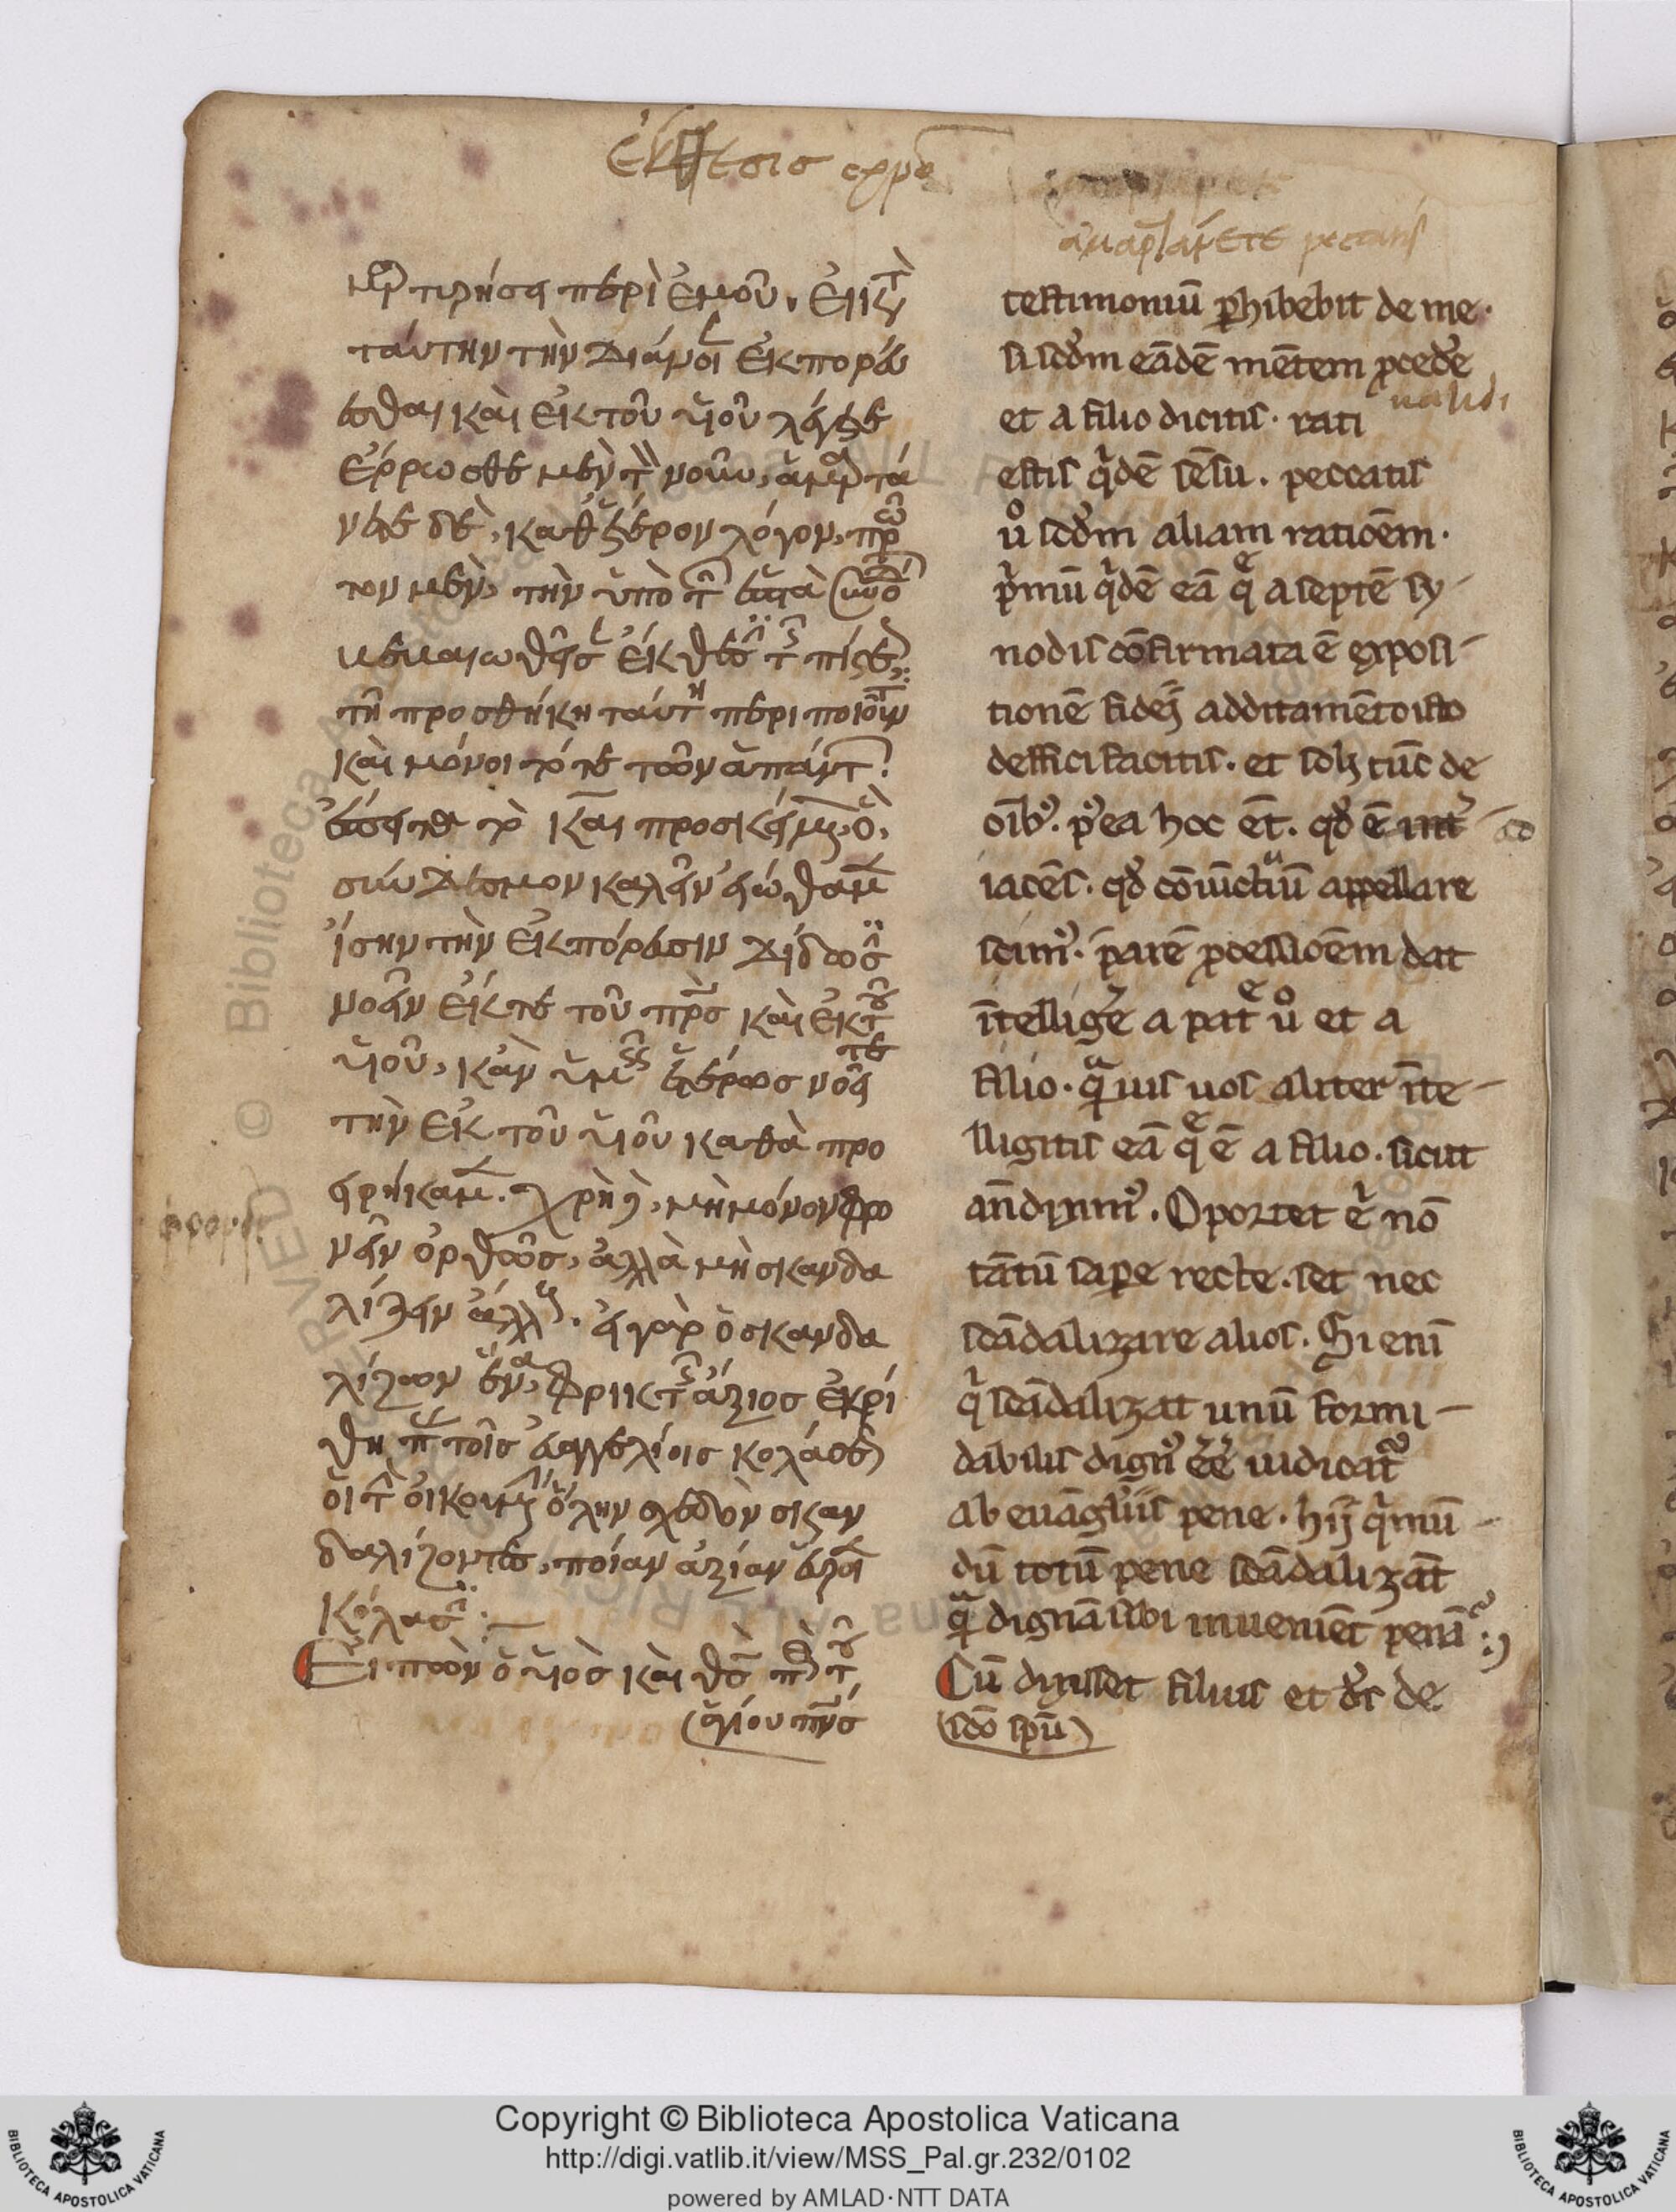 ἔκθεσις
ἁμαρτάνετε peccatis
μαρτυρήσει περὶ ἐμοῦ. εἰ κατὰ
ταύτην τὴν διάνοιαν ἐκπορεύ
εσθαι καὶ ἐκ τοῦ υἱοῦ λέγετε
ἔρρωσθε μὲν τὸν νοῦν, ἁμαρτά
νετε δὲ, καθ' ἕτερον λόγον, πρῶ
τον μὲν, τὴν ὑπὸ τῶν ἑπτὰ συνόδων
βεβαιωθεῖσαν ἔκθεσιν τῆς πίστεως
τῆ προσθήκη ταύτη περιποιοῦντες
καὶ μόνοι τότε τῶν ἁπάντων
ἔπειτα τὸ καὶ προσκείμενον, ὃ
σύνδεσμον καλεῖν εἰώθαμεν
ἴσην τὴν ἐκπόρευσιν δίδωσι
νοεῖν ἔκ τε τοῦ πατρὸς καὶ ἐκ τοῦ
υἱοῦ, κἂν ὑμεῖς ἑτέρως νοεῖτε
τὴν ἐκ τοῦ υἱοῦ καθὰ προ
ειρήκαμεν. χρὴ δὲ, μὴ μόνον φρο
νεῖν ὀρθῶς, ἀλλὰ μὴ σκανδα
λίζειν ἄλλους. εἰ γὰρ ὁ σκανδα
λίζων ἕνα, φρικτῆς ἄξιος ἐκρί
θη παρὰ τοῖς εὐαγγελίοις κολάσεως
οἱ τὴν οἰκουμένην ὅλην σχεδὸν σκαν
δαλίζοντες, ποίαν ἀξίαν εὕρωσι
κόλασιν:
Εἰπὼν ὁ υἱὸς καὶ θς περὶ τοῦ
ἁγίου πνς
testimoniū ꝑhibebit de me.
si scd̄m eādē mētem ꝓcedere
et a filio dicitis. rati ualidi
estis qͥdē sēsu. peccatis
u͛o scd̄m aliam ratiōem.
pͥmū qͥdē eā que a septē sy-
nodis cōfirmata ē exposi-
tionē fidei additamēto isto
deffici facitis. et soli tūc de
oībꝰ. pꝰea hoc et̄. qd̓ ē int͛ ad
iacēs. qd̓ cōiūctiuū appellare
scimꝰ. parē ꝓcessiōem dat
ītellige͛ a patre u͛o et a
filio. qᵃuis uos aliter īte-
lligitis eā que ē a filio. sicut
an̄diximꝰ. Oportet g͛ nō
tātū sapere recte. set nec
scādalizare alios. Si enī
qͥ scādalizat unū formi-
dabilis dignꝰ ēe iudicat᷑
ab euāgliis pene. hij qͥ mū-
dū totū pene scādalizāt
qᵃ dignā sibi inueniēt penā:
Cū dixisset filius et ds̄ de
sc̄o sp̄u
Copyright © Biblioteca Apostolica Vaticana
http://digi.vatlib.it/view/MSS_Pal.gr.232/0102
powered by AMLAD·NTT DATA
BIBLIOTECA APOSTOLICA VATICANA
BIBLIOTECA APOSTOLICA VATICANA